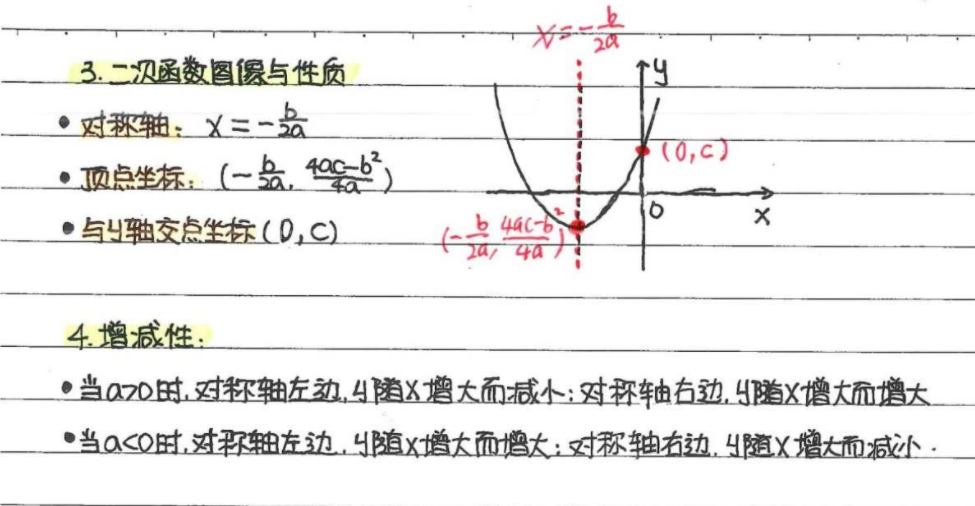 3. 二次函数图像与性质
• 对称轴: x = -b/2a
• 顶点坐标: (-b/2a, 4ac-b²/4a)
• 与y轴交点坐标(0,C)
x = -b/2a
y
(0,C)
0
x
(-b/2a, 4ac-b²/4a)
4. 增减性:
• 当a>0时,对称轴左边,y随x增大而减小;对称轴右边,y随x增大而增大
• 当a<0时,对称轴左边,y随x增大而增大;对称轴右边,y随x增大而减小.